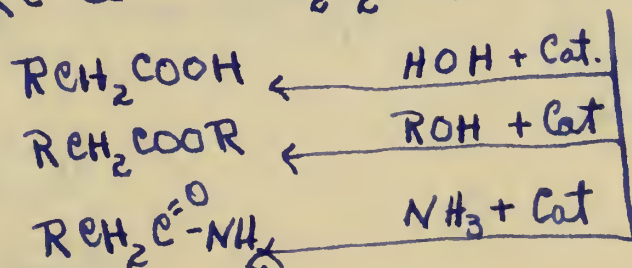 RCH₂COOH ← HOH + Cat.
RCH₂COOR ← ROH + Cat
RCH₂C=O-NH ← NH₃ + Cat